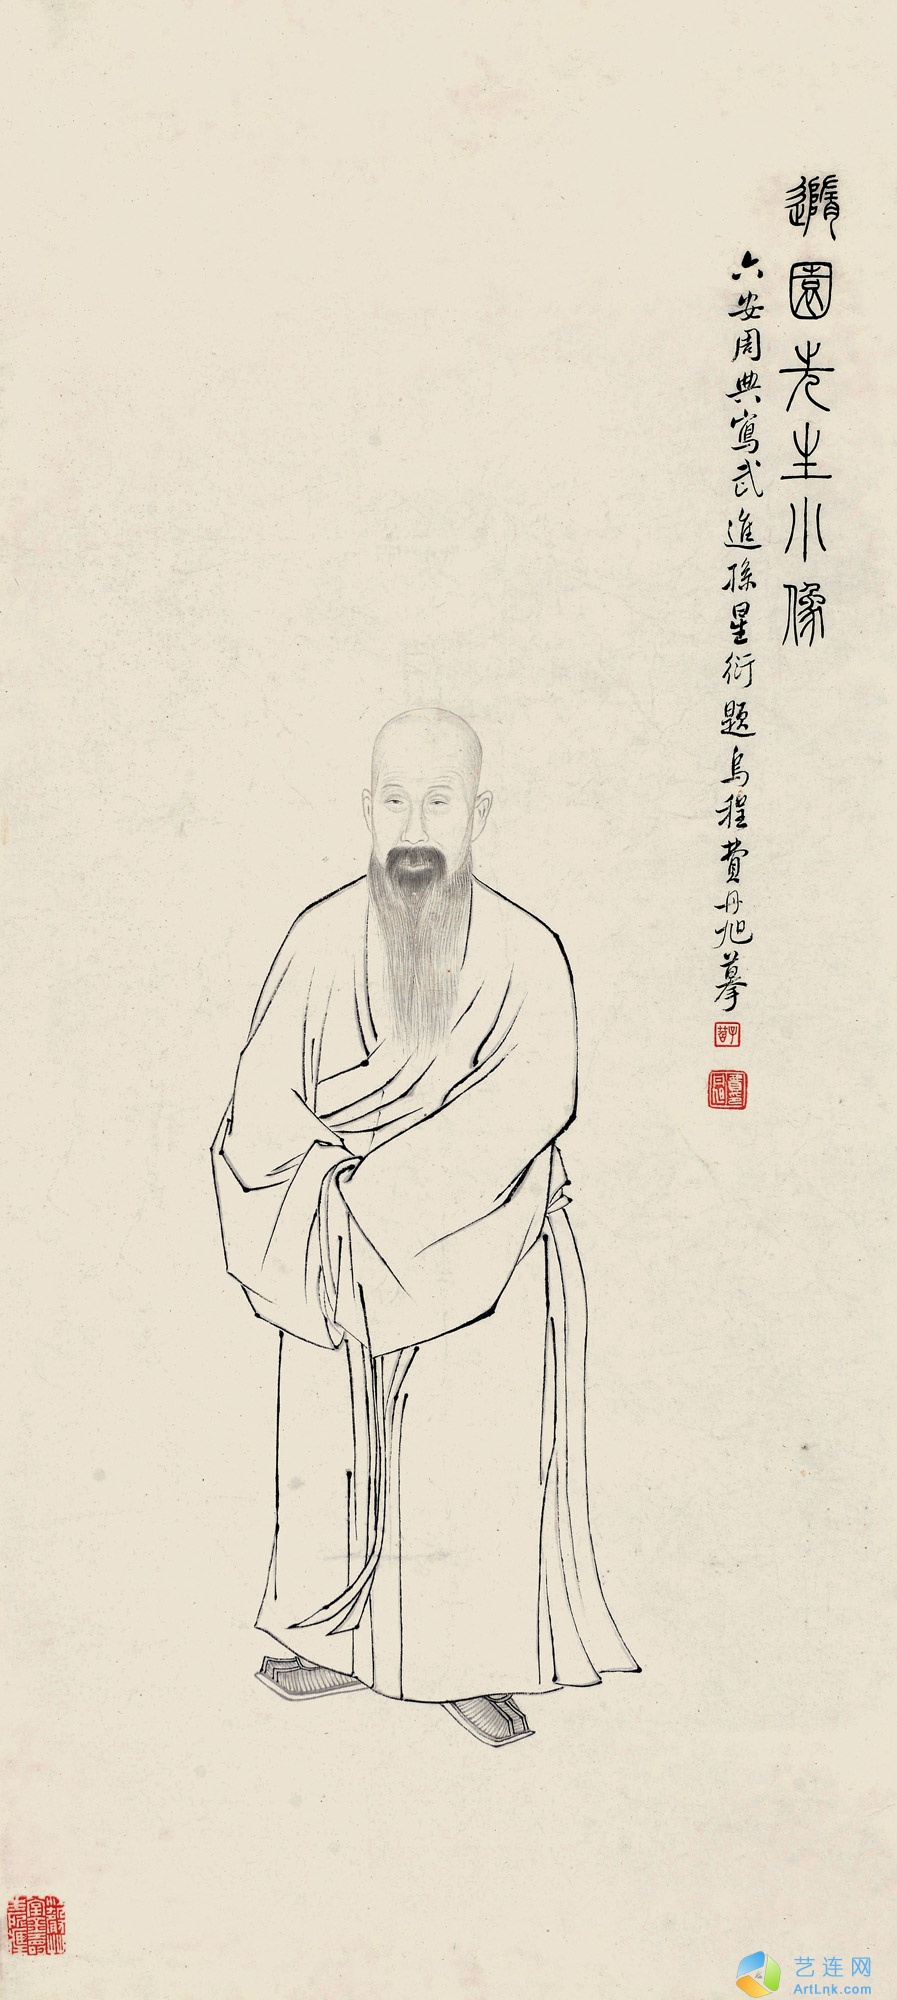 隨園先生小像
六安周典寫武進孫星衍題烏程費丹旭摹
子苕
艺连网
ArtLnk.com